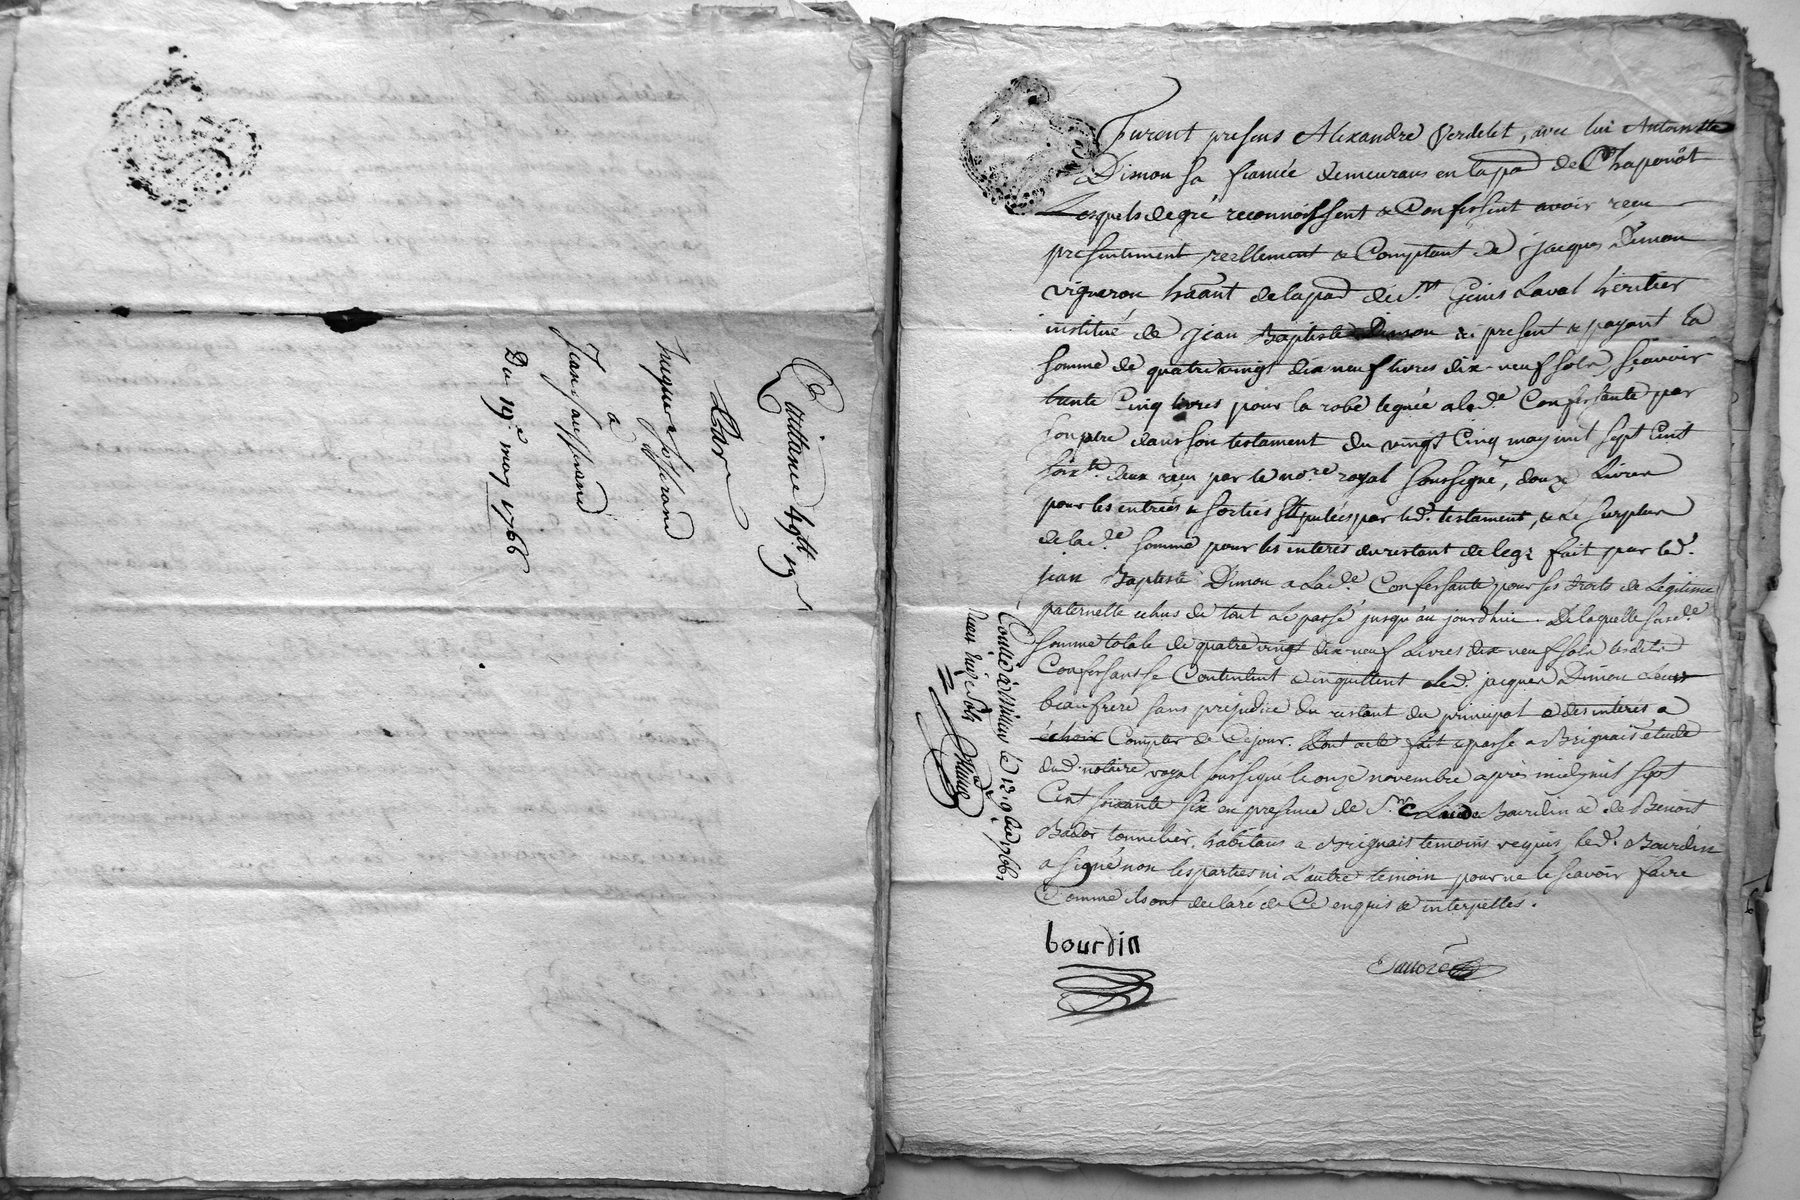 Quittance 49tt 19s
Par
Jacques Jofferand
à
Jean Jausserand
Du 19e may 1766
Furent presens Alexandre Verdelet, avec lui Antoinette
Dimon sa fiancée demeurans en la par de Chaponôt
Lesquels de gré reconnoissent & Confessent avoir recu
presentement reellement & Comptant de jacques dimon
vigneron ha'ant de la par de st Genis Laval heritier
institué de Jean Baptiste Dimon ici present & payant la
somme de quatrevingt dix neuf livres dix-neuf sols, sçavoir
trente Cinq livres pour la robe leguée a lade Confessante par
son pere dans son testament du vingt Cinq may mil sept Cent
soixte deux recu par le nore royal soussigné, douze Livres
pour les entrées & sorties stipulées par led. testament, & le surplus
de lade somme pour les interes du restant de legs fait par led.
jean Baptiste Dimon a lade Confessante pour ses droits de Legitime
paternelle echus de tout le passé jusqu'au jourdhui. De laquelle susde
somme totale de quatre vingt dix-neuf Livres dix neuf sols lesdits
Confessans se Contentent & in quittent led. jacques Dimon Leur
beaufrere sans prejudice du restant du principal & des interes a
échoir Compter de Cejour. Dont acte fait & passé a Brignais étude
dud. notaire royal soussigné le onze novembre après midy mil sept
Cent soixante six en presence de Sr Claude Bourdin & de Benoit
Bador tonnelier, habitans a Brignais temoins requis, led. Bourdin
a signé non les parties ni L'autre temoin pour ne le sçavoir faire
Comme ils ont declaré de Ce enquis & interpellés.
bourdin
Controlé à le 13 9bre 1766
Recu sols